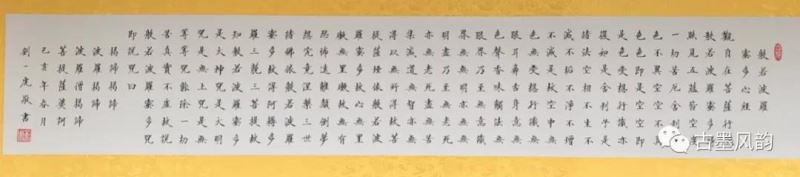 般若波羅
蜜多心經
觀自在菩薩行深
般若波羅蜜多時
照見五蘊皆空度
一切苦厄舍利子
色不異空空不異
色色即是空空即
是色受想行識亦
復如是舍利子是
諸法空相不生不
滅不垢不淨不增
不減是故空中無
色無受想行識無
眼耳鼻舌身意無
色聲香味觸法無
眼界乃至無意識
界無無明亦無無
明盡乃至無老死
亦無老死盡無苦
集滅道無智亦無
得以無所得故菩
提薩埵依般若波
羅蜜多故心無罣
礙無罣礙故無有
恐怖遠離顛倒夢
想究竟涅槃三世
諸佛依般若波羅
蜜多故得阿耨多
羅三藐三菩提故
知般若波羅蜜多
是大神咒是大明
咒是無上咒是無
等等咒能除一切
苦真實不虛故說
般若波羅蜜多咒
即說咒曰
揭諦揭諦
波羅揭諦
波羅僧揭諦
菩提薩婆訶
己亥年春月
劉一虎敬書
古墨风韵